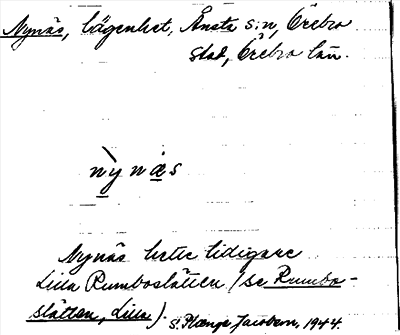 Nynäs, lägenhet, Ånsta s:n, Örebro
stad, Örebro län.
nỳnäs
Nynäs hette tidigare
Lilla Rumboslätten (se Rumbo-
slätten, Lilla).
S. Plænge Jacobson, 1944.